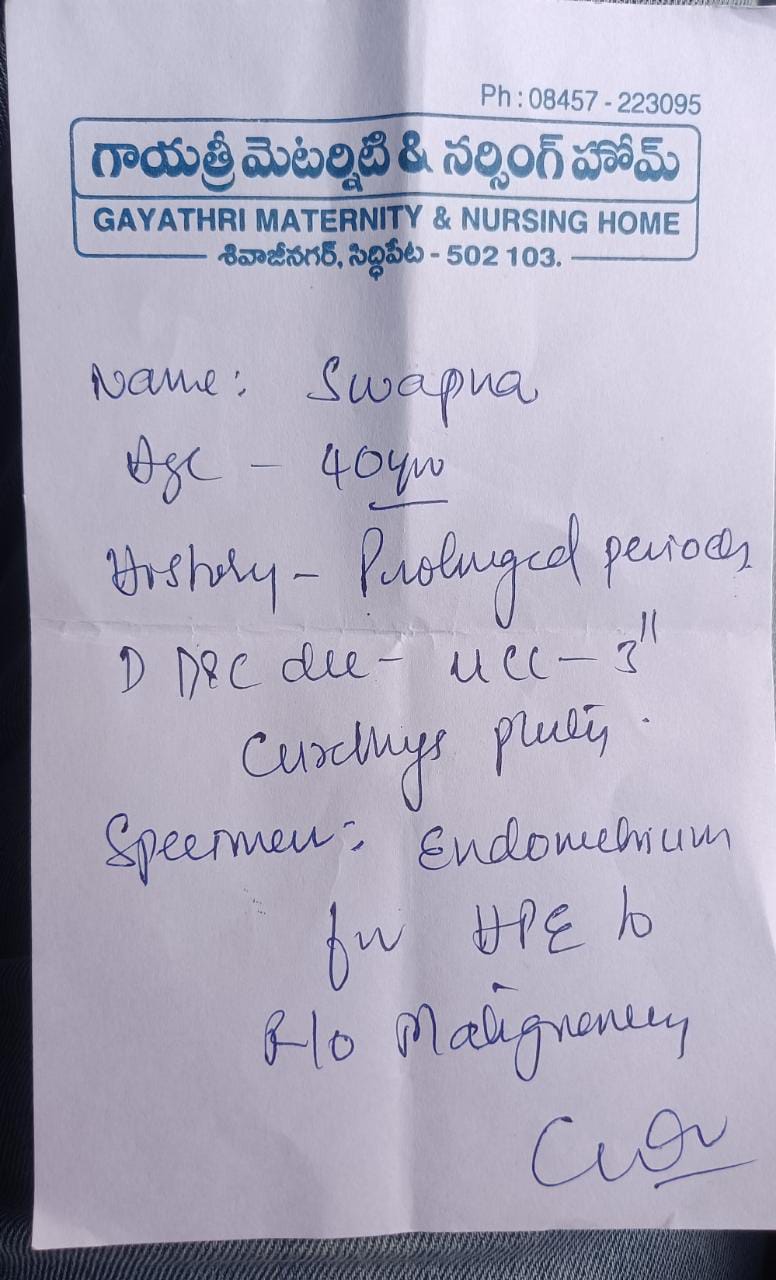 Ph : 08457 - 223095
గాయత్రీ మెటర్నిటి & నర్సింగ్ హోమ్
GAYATHRI MATERNITY & NURSING HOME
శివాజీనగర్, సిద్ధిపేట - 502 103.
Name: Swapna
Age - 40yrs
History - Prolonged periods
D D&C done - UCL - 3"
Curettings plenty.
Specimen: Endometrium
for HPE to
R/o Malignancy